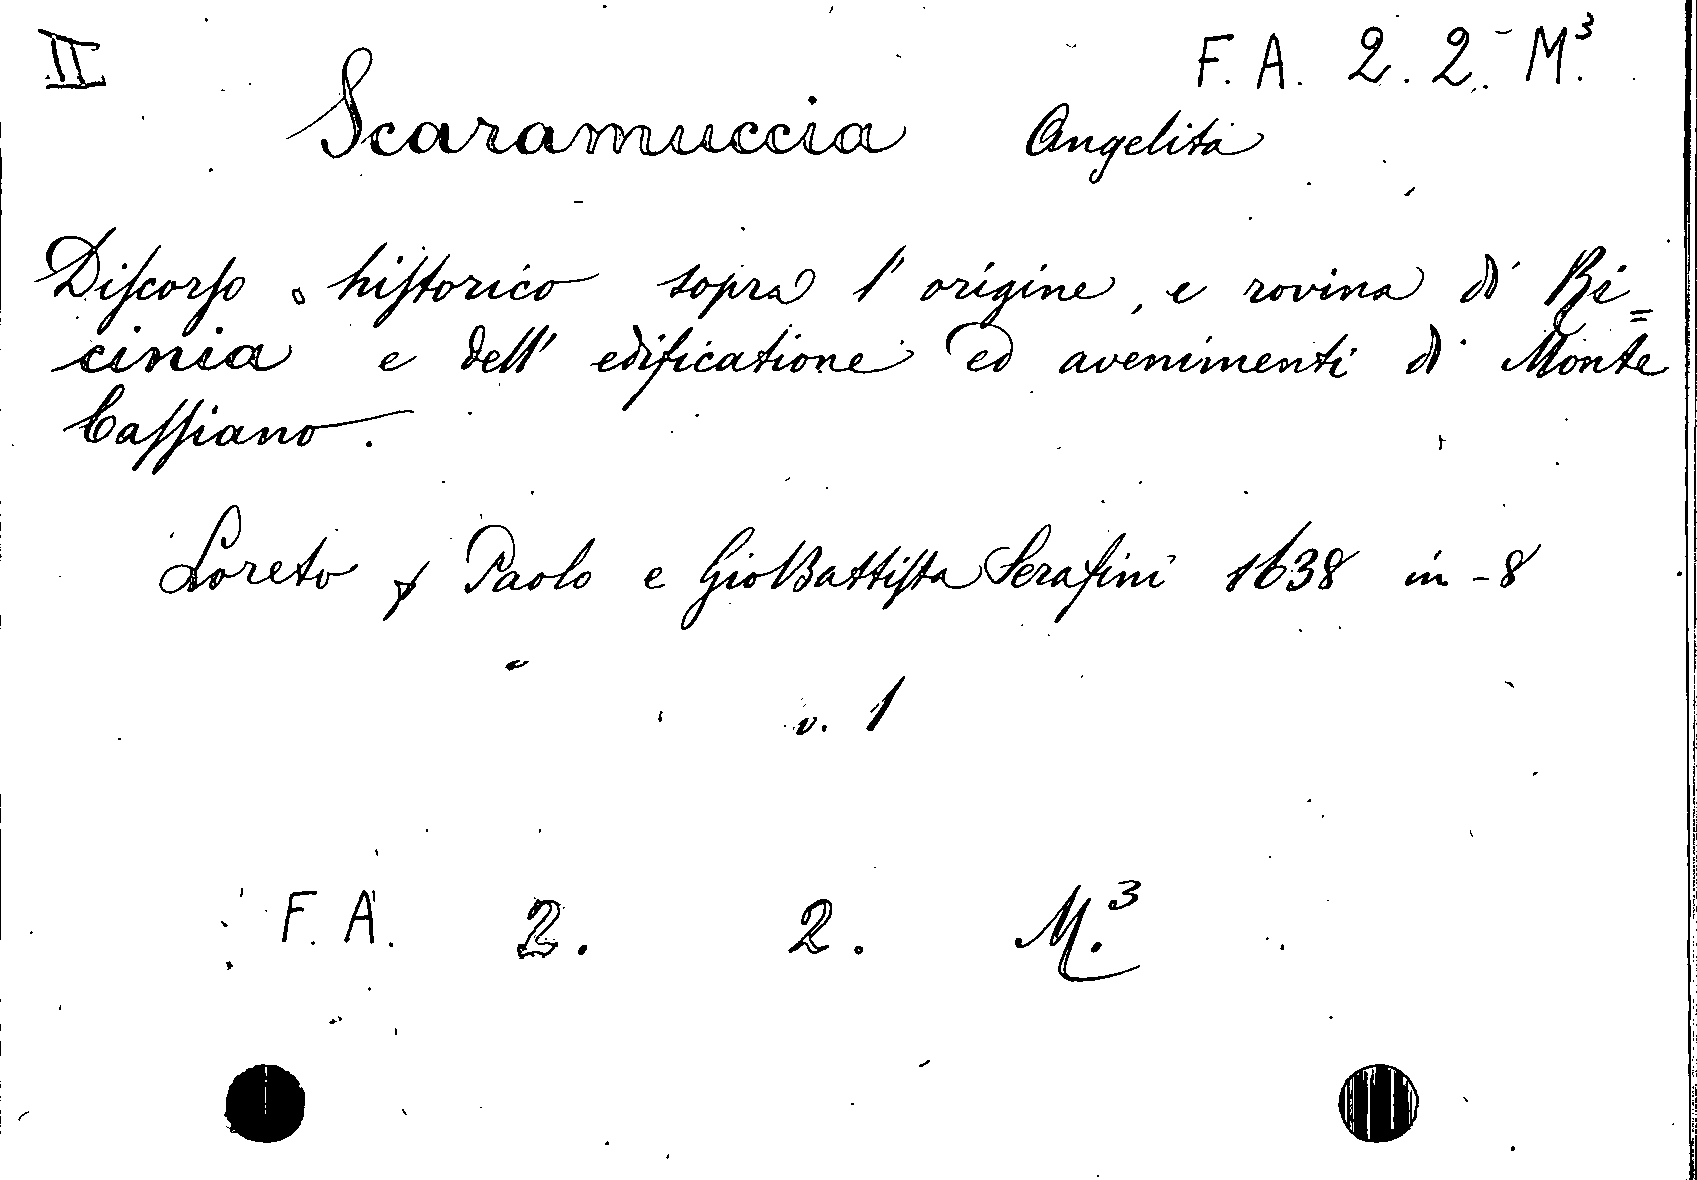 II
F. A. 2. 2. M.³
Scaramuccia Angelita
Discorso historico sopra l'origine, e rovina di Ri=
cinia e dell'edificatione ed avenimenti di Monte
Cassiano.
Loreto Paolo e Gio Battista Serafini 1638 in-8
v. 1
F. A. 2. 2. M.³